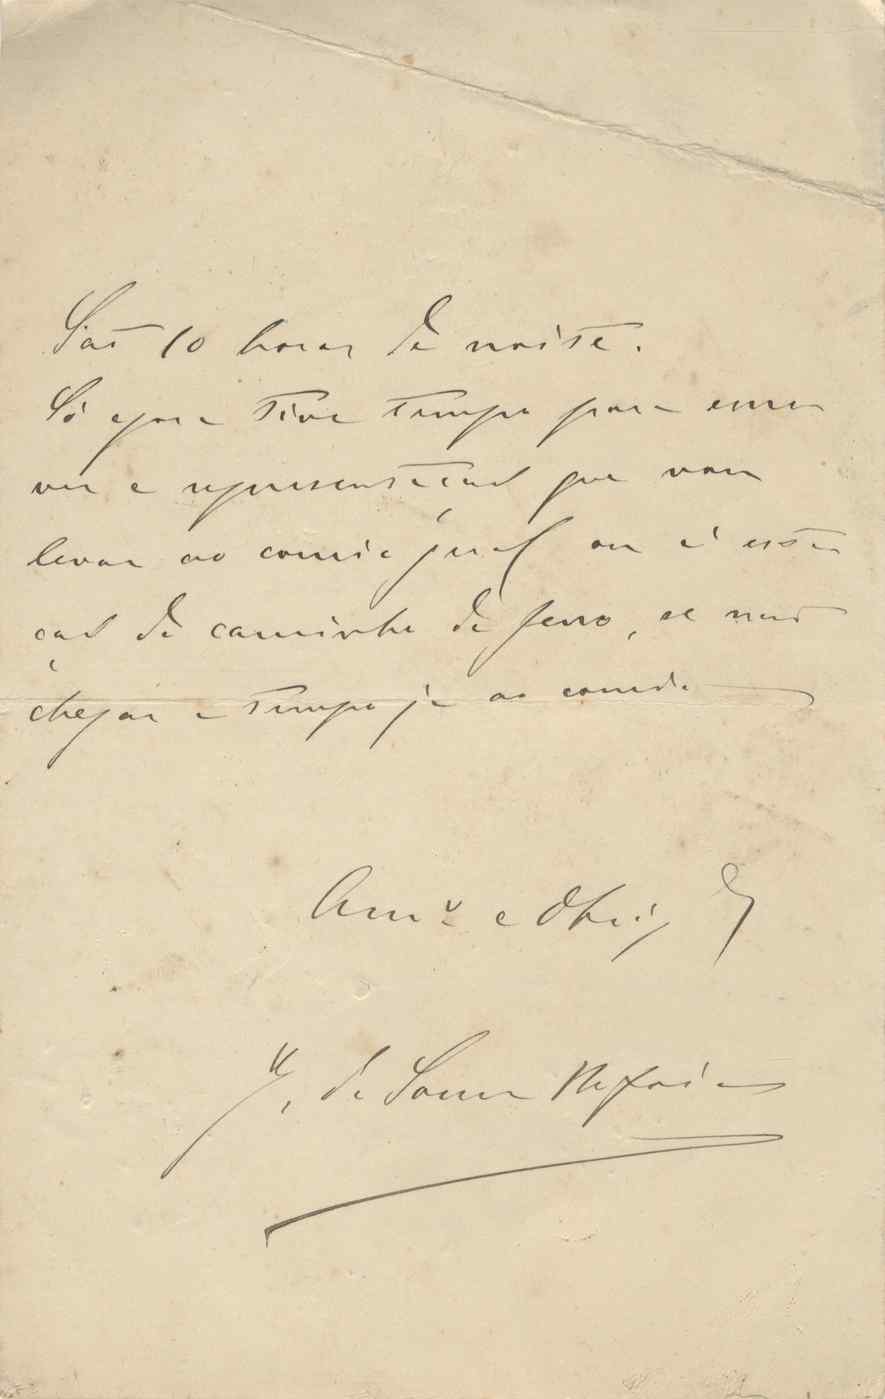 São 10 horas da noite.
Só agora tive tempo para escre
ver a representação que vou
levar ao correio geral ou á esta
ção do caminho de ferro, se não
chegar a tempo já ao correio
Amº e Obrig
J. de Sousa